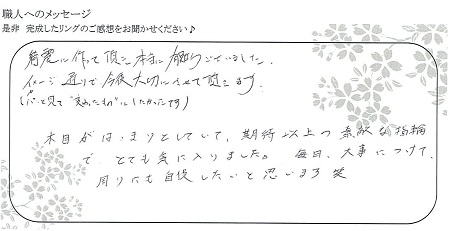 職人へのメッセージ
是非 完成したリングのご感想をお聞かせください♪
綺麗に作って頂き本当に有難うございました。
イメージ通りで今後大切にさせて頂きます。
木目がはっきりとしていて、期待以上の素敵な指輪
で、とても気に入りました。毎日、大事につけて、
周りにも自慢したいと思います 笑